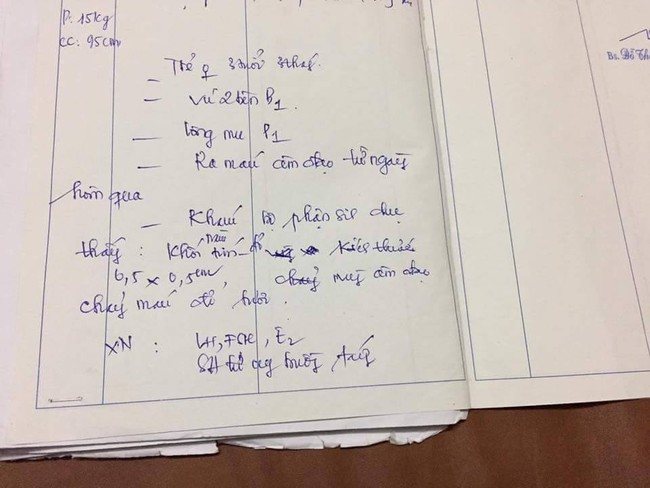 P: 15kg
CC: 95cm
Trẻ ♀ 3 tuổi 3 tháng.
— vú 2 bên B1
— lông mu P1
— Ra máu âm đạo từ ngày
hôm qua
— Khám bộ phận sinh dục
thấy: Khối tím đỏ kích thước
0,5 x 0,5cm, âm đạo
chảy máu đỏ tươi.
XN: LH, FSH, E2
SÂ tử cung buồng trứng
Bs. Đỗ